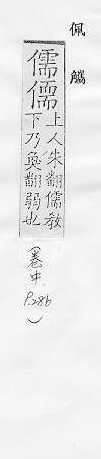 佩觿
儒儒
上人朱翻儒教
下乃奐翻弱也
(卷中
P.28b
)